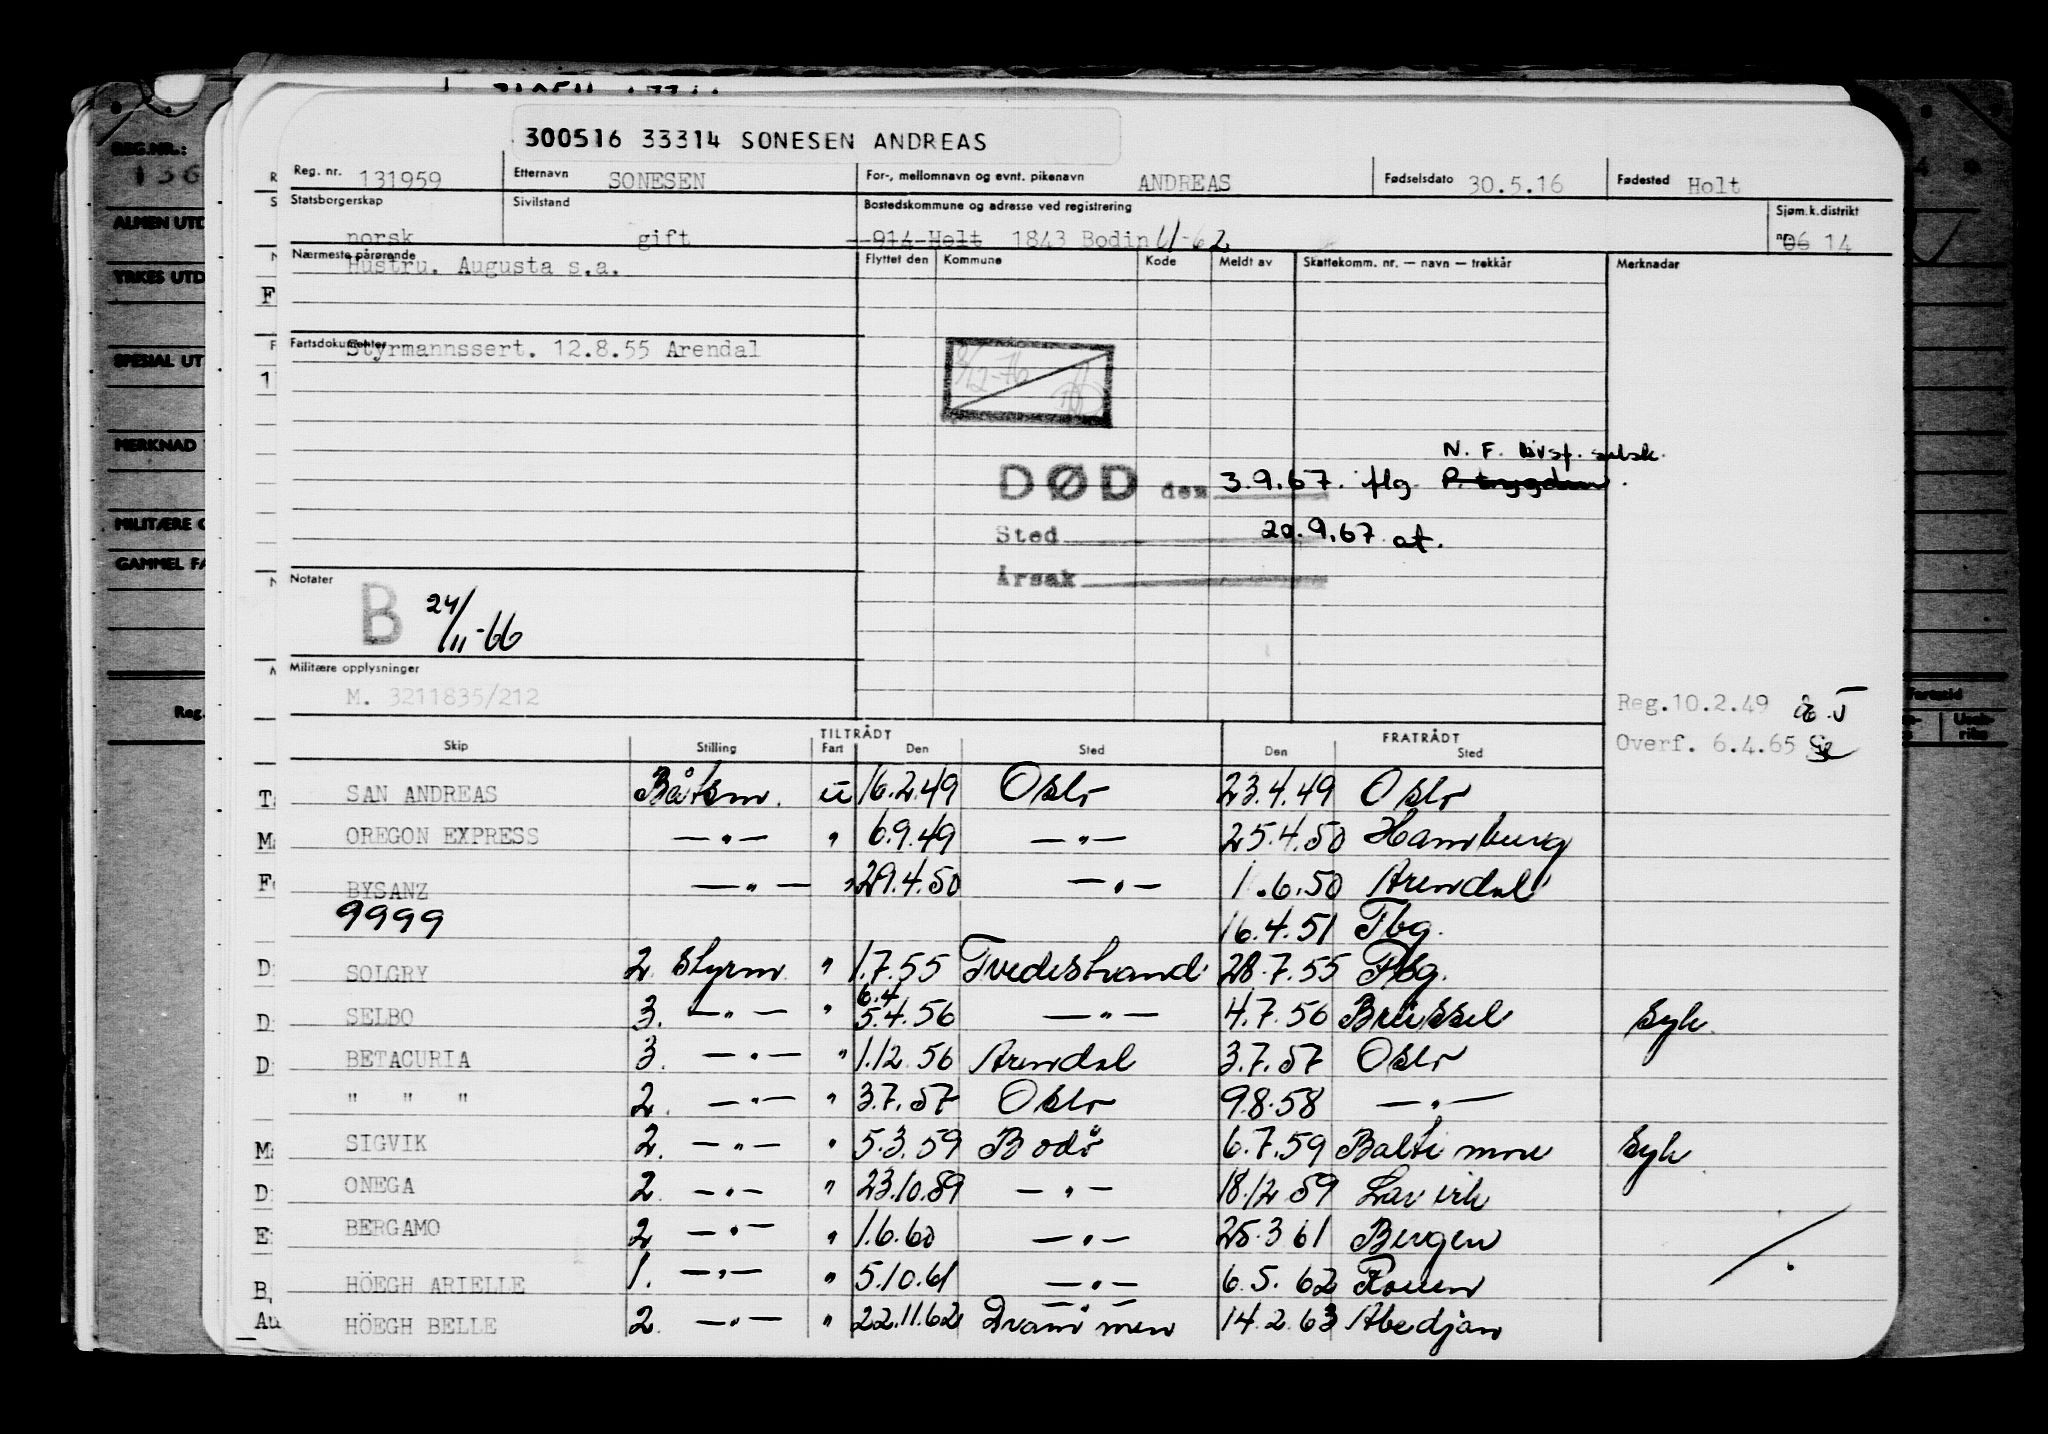 300516 33314 SONESEN ANDREAS
Reg. nr. 131959 Etternavn SONESEN For-, mellomnavn og evnt. pikenavn ANDREAS Fødselsdato 30.5.16 Fødested Holt
Statsborgerskap norsk Sivilstand gift Bostedskommune og adresse ved registrering 914 Holt 1843 Bodin 11-62 Sjøm.k.distrikt nr. 06 14
Nærmeste pårørende Hustru. Augusta s.a. Flyttet den Kommune Kode Meldt av Skattekomm. nr. — navn — trekkår Merknadar
Fartsdokumenter Styrmannssert. 12.8.55 Arendal
2/12-76
N. F. livsf. selsk.
DØD den 3.9.67. flg. P. trygden.
Sted 20.9.67 at.
Årsak
Notater
B 24/11-66
Militære opplysninger
M. 3211835/212
Reg.10.2.49
Overf. 6.4.65
TILTRÅDT FRATRÅDT
Skip Stilling Fart Den Sted Den Sted
SAN ANDREAS Båtsm. u 16.2.49 Oslo 23.4.49 Oslo
OREGON EXPRESS —"— " 6.9.49 —"— 25.4.50 Hamburg
BYSANZ —"— " 29.4.50 —"— 1.6.50 Arendal
9999 16.4.51 Tbg.
SOLGRY 2. Styrm. " 1.7.55 Tvedestrand 28.7.55 Fbg.
6.4
SELBO 3. —"— " 5.4.56 —"— 4.7.56 Brüssel Syk.
BETACURIA 3. —"— " 1.12.56 Arendal 3.7.57 Oslo
" " " 2. —"— " 3.7.57 Oslo 9.8.58 —"—
SIGVIK 2. —"— " 5.3.59 Bodö 6.7.59 Baltimore Syk
ONEGA 2. —"— " 23.10.59 —"— 18.12.59 Larvik
BERGAMO 2. —"— " 1.6.60 —"— 25.3.61 Bergen
HÖEGH ARIELLE 1. —"— " 5.10.61 —"— 6.5.62 Rouen
HÖEGH BELLE 2. —"— " 22.11.62 Drammen 14.2.63 Abedjan
REG.NR.:
136
ALMEN UTD
YRKES UTD
SPESIAL UT
MERKNAD
MILITÆRE O
GAMMEL FA
Reg.